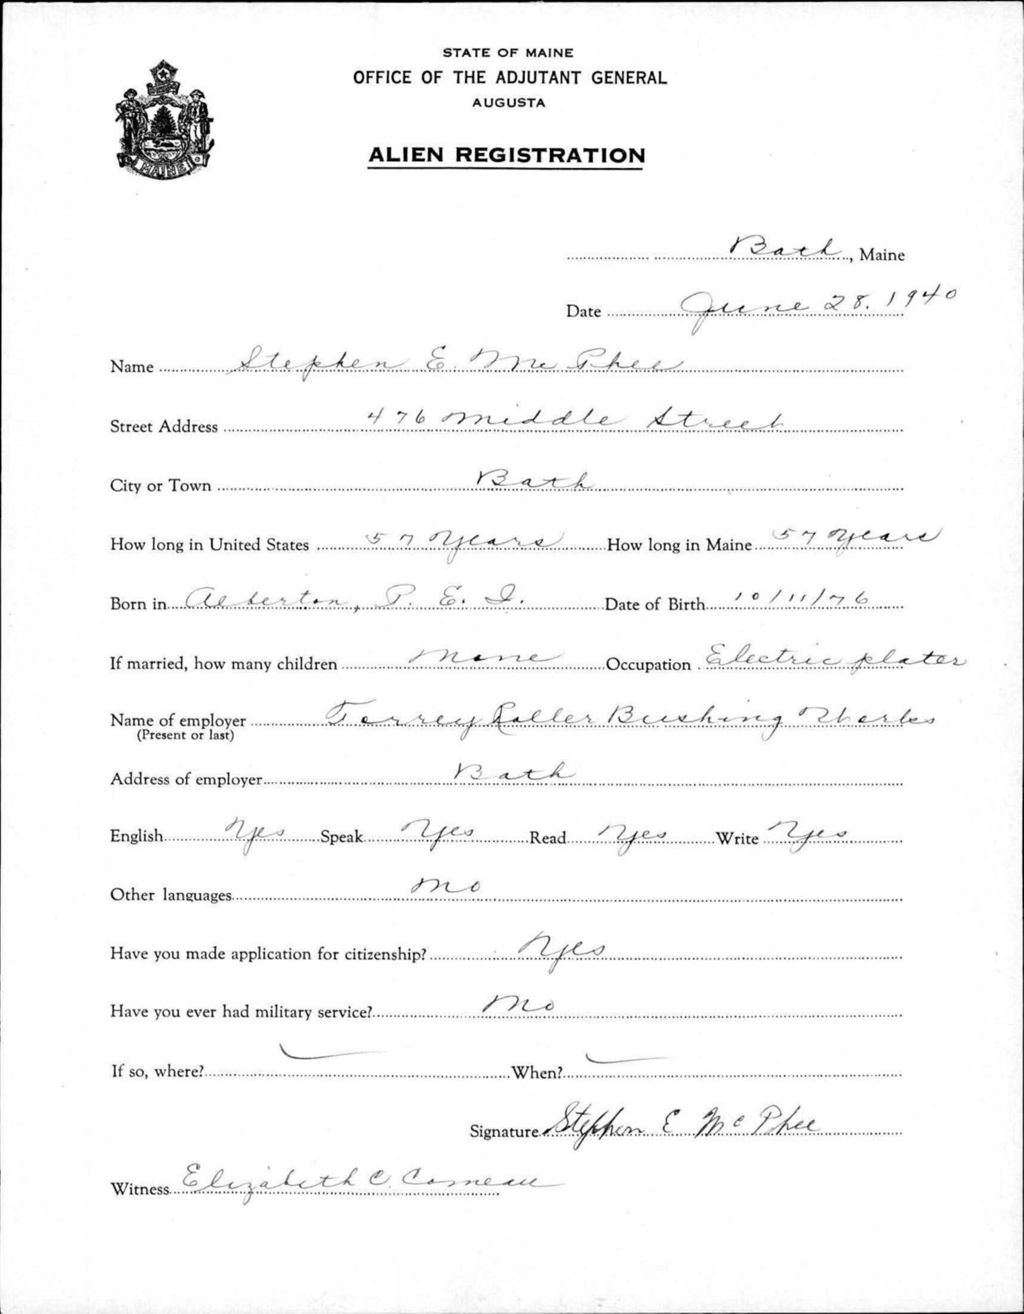 STATE OF MAINE
OFFICE OF THE ADJUTANT GENERAL
AUGUSTA
ALIEN REGISTRATION
MAINE
Bath, Maine
Date June 28. 1940
Name Stephen E. Mc Phee
Street Address 476 Middle Street
City or Town Bath
How long in United States 57 Years How long in Maine 57 Years
Born in Alberton, P. E. I. Date of Birth 10/11/76
If married, how many children None Occupation Electric plater
Name of employer Torrey Roller Bushing Works
(Present or last)
Address of employer Bath
English Yes Speak Yes Read Yes Write Yes
Other languages No
Have you made application for citizenship? Yes
Have you ever had military service? No
If so, where? When?
Signature Stephen E Mc Phee
Witness Elizabeth C. Comeau